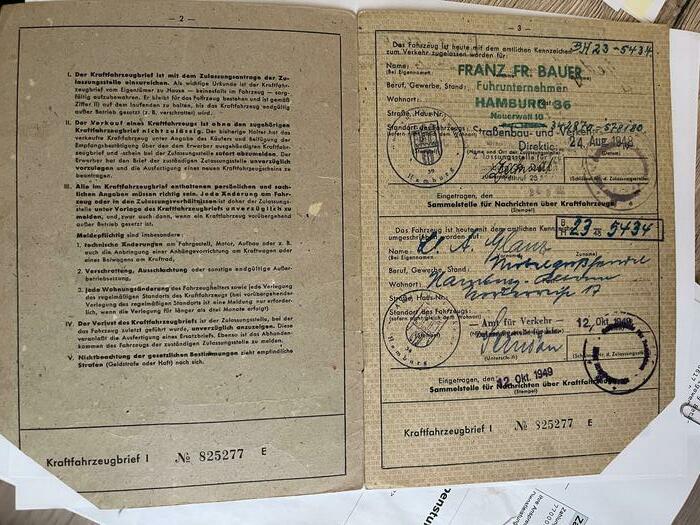 — 2 —
I. Der Kraftfahrzeugbrief ist mit dem Zulassungsantrage der Zu-
lassungsstelle einzureichen. Als wichtige Urkunde ist der Brief
vom Eigentümer zu Hause — keinesfalls im Fahrzeug — sorg-
fältig aufzubewahren. Er bleibt für das Fahrzeug bestehen und ist gemäß
Ziffer III auf dem laufenden zu halten, bis das Kraftfahrzeug endgültig
außer Betrieb gesetzt (z. B. verschrottet) wird.
II. Der Verkauf eines Kraftfahrzeugs ist ohne den zugehörigen
Kraftfahrzeugbrief nicht zulässig. Der bisherige Halter hat das
verkaufte Kraftfahrzeug unter Angabe des Käufers und Beifügung der
Empfangsbestätigung über den dem Erwerber ausgehändigten Kraftfahr-
zeugbrief und -schein bei der Zulassungsstelle sofort abzumelden. Der
Erwerber hat den Brief der zuständigen Zulassungsstelle unverzüglich
vorzulegen und die Ausfertigung eines neuen Kraftfahrzeugscheins zu
beantragen.
III. Alle im Kraftfahrzeugbrief enthaltenen persönlichen und sach-
lichen Angaben müssen richtig sein. Jede Änderung am Fahr-
zeug oder in den Zulassungsverhältnissen ist daher der Zulassungs-
stelle unter Vorlage des Kraftfahrzeugbriefs unverzüglich zu
melden, und zwar auch dann, wenn ein Kraftfahrzeug vorübergehend
außer Betrieb gesetzt ist.
Meldepflichtig sind insbesondere:
1. technische Änderungen am Fahrgestell, Motor, Aufbau oder z. B.
auch die Anbringung einer Anhängevorrichtung am Kraftwagen oder
eines Beiwagens am Kraftrad,
2. Verschrottung, Ausschlachtung oder sonstige endgültige Außer-
betriebsetzung,
3. jede Wohnungsänderung des Fahrzeughalters sowie jede Verlegung
des regelmäßigen Standorts des Kraftfahrzeugs (bei vorübergehender
Verlegung des regelmäßigen Standorts ist eine Meldung nur erforder-
lich, wenn die Verlegung für länger als drei Monate erfolgt)
IV. Der Verlust des Kraftfahrzeugbriefs ist der Zulassungsstelle, bei der
das Fahrzeug zuletzt geführt wurde, unverzüglich anzuzeigen. Diese
veranlaßt die Ausfertigung eines Ersatzbriefs. Ebenso ist das Abhanden-
kommen des Fahrzeugs der zuständigen Zulassungsstelle zu melden.
V. Nichtbeachtung der gesetzlichen Bestimmungen zieht empfindliche
Strafen (Geldstrafe oder Haft) nach sich.
Kraftfahrzeugbrief I № 825277 E
— 3 —
Das Fahrzeug ist heute mit dem amtlichen Kennzeichen BH 23-5434
zum Verkehr zugelassen worden für
Name:
(Bei Eigennamen:
FRANZ FR. BAUER
Beruf, Gewerbe, Stand: Fuhrunternehmen
Wohnort: HAMBURG 36
Straße, Haus-Nr.: Neuerwall 10
Standort des Fahrzeugs:
Straßenbau- und
Direktion
24. Aug. 1948
Hamburg
Eingetragen, den
Sammelstelle für Nachrichten über Kraftfahrzeuge
(Stempel)
Das Fahrzeug ist heute mit dem amtlichen Kennzeichen B H 23 45 5434
umgeschrieben worden
Name:
(Bei Eigennamen:
Beruf, Gewerbe, Stand:
Wohnort: Hamburg-
Straße, Haus-Nr.:
Standort des Fahrzeugs:
— Amt für Verkehr —
12. Okt. 1949
Hamburg
Eingetragen, den 12. Okt. 1949
Sammelstelle für Nachrichten über Kraftfahrzeuge
(Stempel)
Kraftfahrzeugbrief I № 825277 E